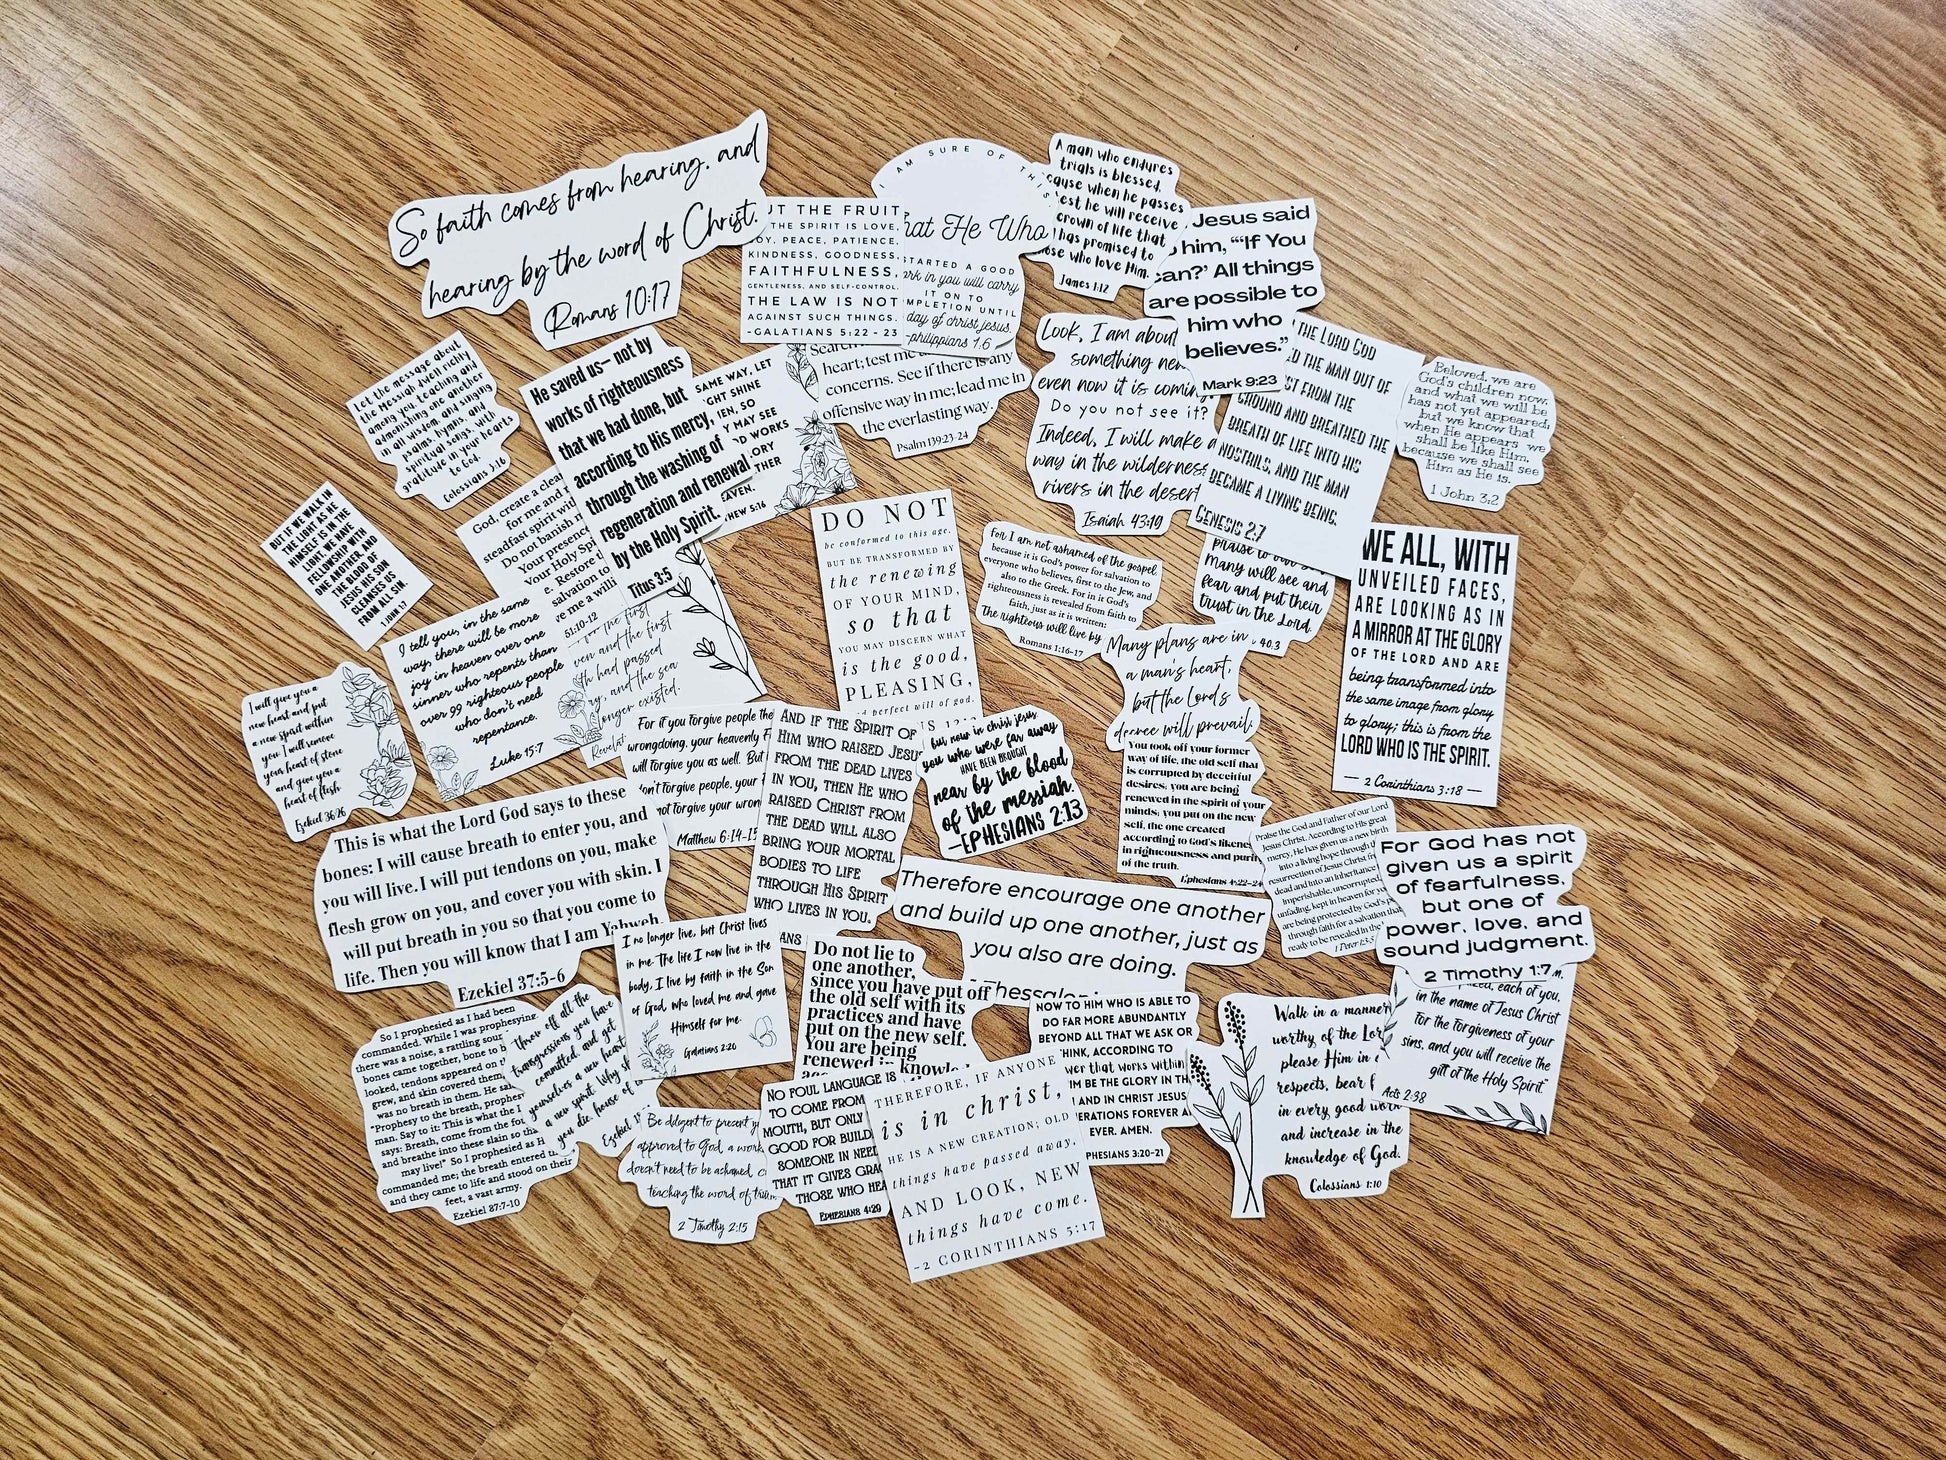 So faith comes from hearing, and
hearing by the word of Christ.
Romans 10:17
UT THE FRUIT
THE SPIRIT IS LOVE,
JOY, PEACE, PATIENCE,
KINDNESS, GOODNESS,
FAITHFULNESS,
GENTLENESS, AND SELF-CONTROL.
THE LAW IS NOT
AGAINST SUCH THINGS.
-GALATIANS 5:22-23
I AM SURE OF THIS
hat He Who
STARTED A GOOD
ork in you will carry
IT ON TO
MPLETION UNTIL
day of christ jesus.
philippians 1.6
A man who endures
trials is blessed,
cause when he passes
test he will receive
crown of life that
has promised to
ose who love Him.
James 1:12
Jesus said
him, “‘If You
can?’ All things
are possible to
him who
believes.”
Mark 9:23
Let the message about
the Messiah dwell richly
among you, teaching and
admonishing one another
in all wisdom, and singing
psalms, hymns, and
spiritual songs, with
gratitude in your hearts
to God.
Colossians 3:16
He saved us— not by
works of righteousness
that we had done, but
according to His mercy,
through the washing of
regeneration and renewal
by the Holy Spirit.
Titus 3:5
SAME WAY, LET
GHT SHINE
EN, SO
Y MAY SEE
D WORKS
ORY
THER
EAVEN.
HEW 5:16
Search
heart; test me
concerns. See if there is any
offensive way in me; lead me in
the everlasting way.
Psalm 139:23-24
Look, I am about
something new
even now it is coming
Do you not see it?
Indeed, I will make a
way in the wilderness
rivers in the desert
Isaiah 43:19
THE LORD GOD
D THE MAN OUT OF
ST FROM THE
GROUND AND BREATHED THE
BREATH OF LIFE INTO HIS
NOSTRILS, AND THE MAN
BECAME A LIVING BEING.
GENESIS 2:7
Beloved, we are
God's children now,
and what we will be
has not yet appeared;
but we know that
when He appears we
shall be like Him,
because we shall see
Him as He is.
1 John 3:2
BUT IF WE WALK IN
THE LIGHT AS HE
HIMSELF IS IN THE
LIGHT, WE HAVE
FELLOWSHIP WITH
ONE ANOTHER, AND
THE BLOOD OF
JESUS HIS SON
CLEANSES US
FROM ALL SIN.
1 JOHN 1:7
God, create a clean
for me and
steadfast spirit wit
Do not banish
Your presence
Your Holy Spi
Restore
salvation to
e me a willi
51:10-12
DO NOT
be conformed to this age.
BUT BE TRANSFORMED BY
the renewing
OF YOUR MIND,
so that
YOU MAY DISCERN WHAT
is the good,
PLEASING,
d perfect will of god.
For I am not ashamed of the gospel,
because it is God's power for salvation to
everyone who believes, first to the Jew, and
also to the Greek. For in it God's
righteousness is revealed from faith to
faith, just as it is written:
The righteous will live by
Romans 1:16-17
praise to our
Many will see and
fear and put their
trust in the Lord.
40.3
WE ALL, WITH
UNVEILED FACES,
ARE LOOKING AS IN
A MIRROR AT THE GLORY
OF THE LORD AND ARE
being transformed into
the same image from glory
to glory; this is from the
LORD WHO IS THE SPIRIT.
— 2 Corinthians 3:18 —
I tell you, in the same
way, there will be more
joy in heaven over one
sinner who repents than
over 99 righteous people
who don't need
repentance.
Luke 15:7
the first
ven and the first
th had passed
y, and the sea
onger existed.
Revelat
Many plans are in
a man's heart,
but the Lord's
decree will prevail.
I will give you a
new heart and put
a new spirit within
you; I will remove
your heart of stone
and give you a
heart of flesh
Ezekiel 36:26
For if you forgive people the
wrongdoing, your heavenly F
will forgive you as well. But
on't forgive people, your
not forgive your wron
Matthew 6:14-15
AND IF THE SPIRIT OF
HIM WHO RAISED JESUS
FROM THE DEAD LIVES
IN YOU, THEN HE WHO
RAISED CHRIST FROM
THE DEAD WILL ALSO
BRING YOUR MORTAL
BODIES TO LIFE
THROUGH HIS SPIRIT
WHO LIVES IN YOU.
ANS
but now in christ jesus,
you who were far away
HAVE BEEN BROUGHT
near by the blood
of the messiah.
—EPHESIANS 2:13
You took off your former
way of life, the old self that
is corrupted by deceitful
desires; you are being
renewed in the spirit of your
minds; you put on the new
self, the one created
according to God's likenes
in righteousness and purit
of the truth.
Ephesians 4:22-24
This is what the Lord God says to these
bones: I will cause breath to enter you, and
you will live. I will put tendons on you, make
flesh grow on you, and cover you with skin. I
will put breath in you so that you come to
life. Then you will know that I am Yahweh.
Ezekiel 37:5-6
Praise the God and Father of our Lord
Jesus Christ. According to His great
mercy, He has given us a new birth
into a living hope through
resurrection of Jesus Christ fr
dead and into an inheritance
imperishable, uncorrupted,
unfading, kept in heaven for yo
are being protected by God's p
through faith for a salvation tha
ready to be revealed in the
1 Peter 1:3-5
For God has not
given us a spirit
of fearfulness,
but one of
power, love, and
sound judgment.
2 Timothy 1:7
Therefore encourage one another
and build up one another, just as
you also are doing.
Thessalon
I no longer live, but Christ lives
in me. The life I now live in the
body, I live by faith in the Son
of God, who loved me and gave
Himself for me.
Galatians 2:20
Do not lie to
one another,
since you have put off
the old self with its
practices and have
put on the new self.
You are being
renewed in knowle
So I prophesied as I had been
commanded. While I was prophesying,
there was a noise, a rattling soun
bones came together, bone to b
looked, tendons appeared on t
grew, and skin covered them,
was no breath in them. He sai
"Prophesy to the breath, prophes
man. Say to it: This is what the L
says: Breath, come from the fo
and breathe into these slain so tha
may live!" So I prophesied as H
commanded me; the breath entered th
and they came to life and stood on their
feet, a vast army.
Ezekiel 37:7-10
Throw off all the
transgressions you have
committed, and get
yourselves a new heart
a new spirit. Why sh
you die, house of
Ezekiel 1
Be diligent to present y
approved to God, a work
doesn't need to be ashamed, c
teaching the word of truth.
2 Timothy 2:15
NO FOUL LANGUAGE IS
TO COME FROM
MOUTH, BUT ONLY
GOOD FOR BUILD
SOMEONE IN NEED
THAT IT GIVES GRAC
THOSE WHO HEA
EPHESIANS 4:29
THEREFORE, IF ANYONE
is in christ,
HE IS A NEW CREATION; OLD
things have passed away,
AND LOOK, NEW
things have come.
-2 CORINTHIANS 5:17
NOW TO HIM WHO IS ABLE TO
DO FAR MORE ABUNDANTLY
BEYOND ALL THAT WE ASK OR
HINK, ACCORDING TO
wer that works within
IM BE THE GLORY IN TH
AND IN CHRIST JESUS
ERATIONS FOREVER A
EVER. AMEN.
PHESIANS 3:20-21
Walk in a manner
worthy of the Lor
please Him in
respects, bear f
in every good work
and increase in the
knowledge of God.
Colossians 1:10
each of you,
in the name of Jesus Christ
for the forgiveness of your
sins, and you will receive the
gift of the Holy Spirit"
Acts 2:38